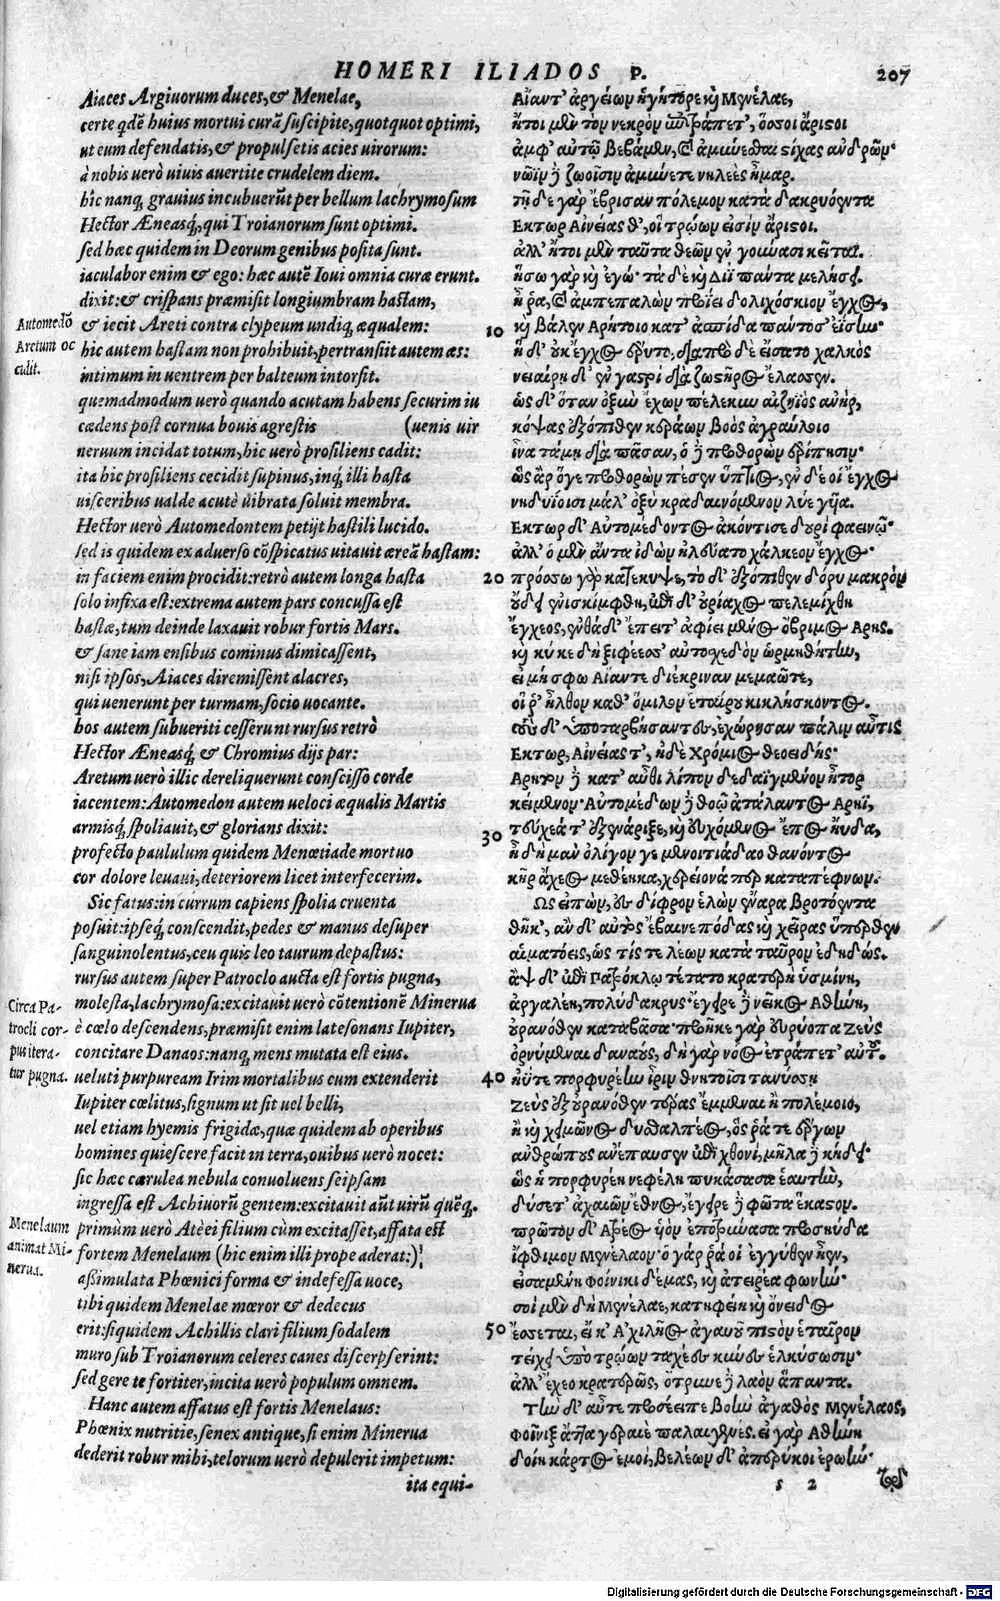 HOMERI ILIADOS P. 207
Aiaces Argiuorum duces,& Menelae,
certe qdẽ huius mortui curã suscipite,quotquot optimi,
ut eum defendatis,& propulsetis acies uirorum:
à nobis uerò uiuis auertite crudelem diem.
hîc nanq; grauius incubuerũt per bellum lachrymosum
Hector Æneasq́;,qui Troianorum sunt optimi.
sed hæc quidem in Deorum genibus posita sunt.
iaculabor enim & ego: hæc autẽ Ioui omnia curæ erunt.
dixit:& crispans præmisit longiumbram hastam,
Automedõ
Aretum oc
cidit.
& iecit Areti contra clypeum undiq; æqualem:
hic autem hastam non prohibuit,pertransiit autem æs:
intimum in uentrem per balteum intorsit.
quemadmodum uerò quando acutam habens securim iu
cædens post cornua bouis agrestis (uenis uir
neruum incidat totum,hic uerò prosiliens cadit:
ita hic prosiliens cecidit supinus,inq́; illi hasta
uisceribus ualde acutè uibrata soluit membra.
Hector uerò Automedontem petijt hastili lucido.
sed is quidem ex aduerso cõspicatus uitauit æreã hastam:
in faciem enim procidit:retrò autem longa hasta
solo infixa est:extrema autem pars concussa est
hastæ,tum deinde laxauit robur fortis Mars.
& sane iam ensibus cominus dimicassent,
nisi ipsos,Aiaces diremissent alacres,
qui uenerunt per turmam,socio uocante.
hos autem subueriti cesserunt rursus retrò
Hector Æneasq́; & Chromius dijs par:
Aretum uerò illic dereliquerunt conscisso corde
iacentem:Automedon autem ueloci æqualis Martis
armisq́; spoliauit,& glorians dixit:
profecto paululum quidem Menœtiade mortuo
cor dolore leuaui,deteriorem licet interfecerim.
Sic fatus:in currum capiens spolia cruenta
posuit:ipseq́; conscendit,pedes & manus desuper
sanguinolentus,ceu quis leo taurum depastus:
rursus autem super Patroclo aucta est fortis pugna,
Circa Pa-
trocli cor-
pus itera-
tur pugna.
molesta,lachrymosa:excitauit uerò cõtentionẽ Minerua
è cœlo descendens,præmisit enim latesonans Iupiter,
concitare Danaos:nanq; mens mutata est eius.
ueluti purpuream Irim mortalibus cum extenderit
Iupiter cœlitus,signum ut sit uel belli,
uel etiam hyemis frigidæ,quæ quidem ab operibus
homines quiescere facit in terra,ouibus uerò nocet:
sic hæc cærulea nebula conuoluens seipsam
ingressa est Achiuorũ gentem:excitauit aũt uirũ quẽq;.
Menelaum
animat Mi-
nerua.
primùm uerò Atèei filium cùm excitasset,affata est
fortem Menelaum (hic enim illi prope aderat:)
aßimulata Phœnici forma & indefessa uoce,
tibi quidem Menelae mœror & dedecus
erit:siquidem Achillis clari filium sodalem
muro sub Troianorum celeres canes discerpserint:
sed gere te fortiter,incita uerò populum omnem.
Hanc autem affatus est fortis Menelaus:
Phœnix nutritie,senex antique,si enim Minerua
dederit robur mihi,telorum uerò depulerit impetum:
ita equi-
Αἴαντ' ἀργείων ἡγήτορε καὶ Μενέλαε,
ἤτοι μὲν τὸν νεκρὸν ἐπιτράπετ', ὅσοι ἄριστοι
ἀμφ' αὐτῷ βεβάμεν, καὶ ἀμύνεσθαι στίχας ἀνδρῶν·
νῶϊν δὲ ζωοῖσιν ἀμύνετε νηλεὲς ἦμαρ.
τῇδε γὰρ ἔβρισαν πόλεμον κατὰ δακρυόεντα
Εκτωρ Αἰνείας θ', οἳ τρώων εἰσὶν ἄριστοι.
ἀλλ' ἤτοι μὲν ταῦτα θεῶν ἐν γούνασι κεῖται.
ἥσω γὰρ καὶ ἐγώ· τὰ δὲ καὶ Διῒ πάντα μελήσει.
ἦ ῥα, καὶ ἀμπεπαλὼν προΐει δολιχόσκιον ἔγχος,
10 καὶ βάλεν Αρήτοιο κατ' ἀσπίδα πάντοσ' ἐΐσην·
ἡ δ' οὐκ ἔγχος ἔρυτο, διαπρὸ δὲ εἴσατο χαλκὸς
νειαίρῃ δ' ἐν γαστρὶ διὰ ζωστῆρος ἔλασσεν.
ὡς δ' ὅταν ὀξὺν ἔχων πέλεκυν αἰζήϊος ἀνὴρ,
κόψας ἐξόπιθεν κεράων βοὸς ἀγραύλοιο
ἶνα τάμῃ διὰ πᾶσαν, ὁ δὲ προθορὼν ἐρίπησιν·
ὣς ἂρ ὅγε προθορὼν πέσεν ὕπτιος, ἐν δέ οἱ ἔγχος
νηδυΐοισι μάλ' ὀξὺ κραδαινόμενον λύε γυῖα.
Εκτωρ δ' Αὐτομέδοντος ἀκόντισε δουρὶ φαεινῷ·
ἀλλ' ὁ μὲν ἄντα ἰδὼν ἠλεύατο χάλκεον ἔγχος·
20 πρόσσω γὰρ κατέκυψε, τὸ δ' ἐξόπιθεν δόρυ μακρὸν
οὔδει ἐνισκίμφθη, ἐπὶ δ' οὐρίαχος πελεμίχθη
ἔγχεος, ἔνθάδ' ἔπειτ' ἀφίει μένος ὄβριμος Αρης.
καὶ νύ κε δὴ ξιφέεσσ' αὐτοσχεδὸν ὡρμηθήτην,
εἰ μή σφω Αἴαντε διέκριναν μεμαῶτε,
οἵ ῥ' ἦλθον καθ' ὅμιλον ἑταίρου κικλήσκοντος.
τοὺς δ' ὑποταρβήσαντες, ἐχώρησαν πάλιν αὖτις
Εκτωρ, Αἰνείας τ', ἠδὲ Χρόμιος θεοειδής·
Αρητον δὲ κατ' αὖθι λίπον δεδαϊγμένον ἦτορ
κείμενον· Αὐτομέδων δὲ θοῷ ἀτάλαντος Αρηϊ,
30 τεύχεά τ' ἐξενάριξε, καὶ εὐχόμενος ἔπος ηὔδα,
ἦ δὴ μὰν ὀλίγον γε μενοιτιάδαο θανόντος
κῆρ ἄχεος μεθέηκα, χερείονά περ καταπέφνων.
Ως εἰπὼν, ἐς δίφρον ἑλὼν ἔναρα βροτόεντα
θῆκ', ἂν δ' αὐτὸς ἔβαινε πόδας καὶ χεῖρας ὕπερθεν
αἱματόεις, ὥς τίς τε λέων κατὰ ταῦρον ἐδηδώς.
ἂψ δ' ἐπὶ Πατρόκλῳ τέτατο κρατερὴ ὑσμίνη,
ἀργαλέη, πολύδακρυς· ἔγειρε δὲ νεῖκος Αθήνη,
οὐρανόθεν καταβᾶσα· προῆκε γὰρ εὐρύοπα Ζεὺς
ὀρνύμεναι δαναοὺς, δὴ γὰρ νόος ἐτράπετ' αὐτοῦ.
40 ἠΰτε πορφυρέην ἶριν θνητοῖσι τανύσσῃ
Ζεὺς ἐξ οὐρανόθεν τέρας ἔμμεναι ἢ πολέμοιο,
ἢ καὶ χειμῶνος δυσθαλπέος, ὅς ῥά τε ἔργων
ἀνθρώπους ἀνέπαυσεν ἐπὶ χθονὶ, μῆλα δὲ κήδει·
ὣς ἡ πορφυρέη νεφέλη πυκάσασα ἑαυτὴν,
δύσετ' ἀχαιῶν ἔθνος, ἔγειρε δὲ φῶτα ἕκαστον.
πρῶτον δ' Ατρέος υἱὸν ἐποτρύνασα προσηύδα
ἴφθιμον Μενέλαον· ὁ γὰρ ῥά οἱ ἐγγύθεν ἦεν,
εἰσαμένη φοίνικι δέμας, καὶ ἀτειρέα φωνὴν·
σοὶ μὲν δὴ Μενέλαε, κατηφείη καὶ ὄνειδος
50 ἔσσεται, εἴ κ' Αχιλῆος ἀγαυοῦ πιστὸν ἑταῖρον
τείχει ὑπὸ τρώων ταχέες κύνες ἑλκύσωσιν·
ἀλλ' ἔχεο κρατερῶς, ὄτρυνε δὲ λαὸν ἅπαντα.
Τὴν δ' αὖτε προσέειπε βοὴν ἀγαθὸς Μενέλαος,
φοῖνιξ ἄττα γεραιὲ παλαιγενές. εἰ γὰρ Αθήνη
δοίη κάρτος ἐμοὶ, βελέων δ' ἀπερύκοι ἐρωήν·
s 2 τῷ
Digitalisierung gefördert durch die Deutsche Forschungsgemeinschaft - DFG